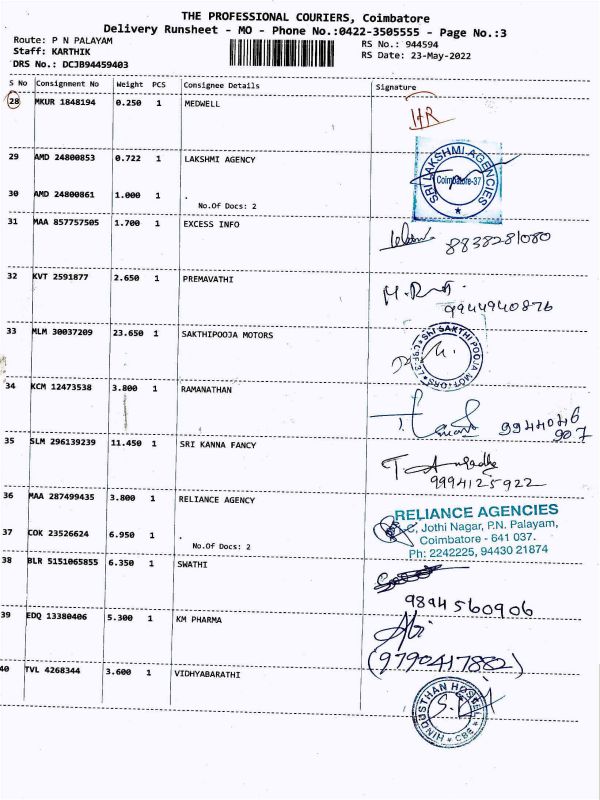 THE PROFESSIONAL COURIERS, Coimbatore
Delivery Runsheet - MO - Phone No.:0422-3505555 - Page No.:3
Route: P N PALAYAM
RS No.: 944594
Staff: KARTHIK
RS Date: 23-May-2022
DRS No.: DCJB94459403
S No Consignment No Weight PCS Consignee Details Signature
28 MKUR 1848194 0.250 1 MEDWELL HR
29 AMD 24800853 0.722 1 LAKSHMI AGENCY
SRI LAKSHMI AGENCIES
Coimbatore-37
30 AMD 24800861 1.000 1 .
No.Of Docs: 2
31 MAA 857757505 1.700 1 EXCESS INFO
8838281080
32 KVT 2591877 2.650 1 PREMAVATHI
9944940876
33 MLM 30037209 23.650 1 SAKTHIPOOJA MOTORS
SRI SAKTHI POOJA MOTORS
34 KCM 12473538 3.800 1 RAMANATHAN
9944046
907
35 SLM 296139239 11.450 1 SRI KANNA FANCY
9994125922
36 MAA 287499435 3.800 1 RELIANCE AGENCY
RELIANCE AGENCIES
C, Jothi Nagar, P.N. Palayam,
Coimbatore - 641 037.
Ph: 2242225, 94430 21874
37 COK 23526624 6.950 1 .
No.Of Docs: 2
38 BLR 5151065855 6.350 1 SWATHI
9894560906
39 EDQ 13380406 5.300 1 KM PHARMA
Abi
(9790417882)
40 TVL 4268344 3.600 1 VIDHYABARATHI
HINDUSTHAN HOSTEL
CBE